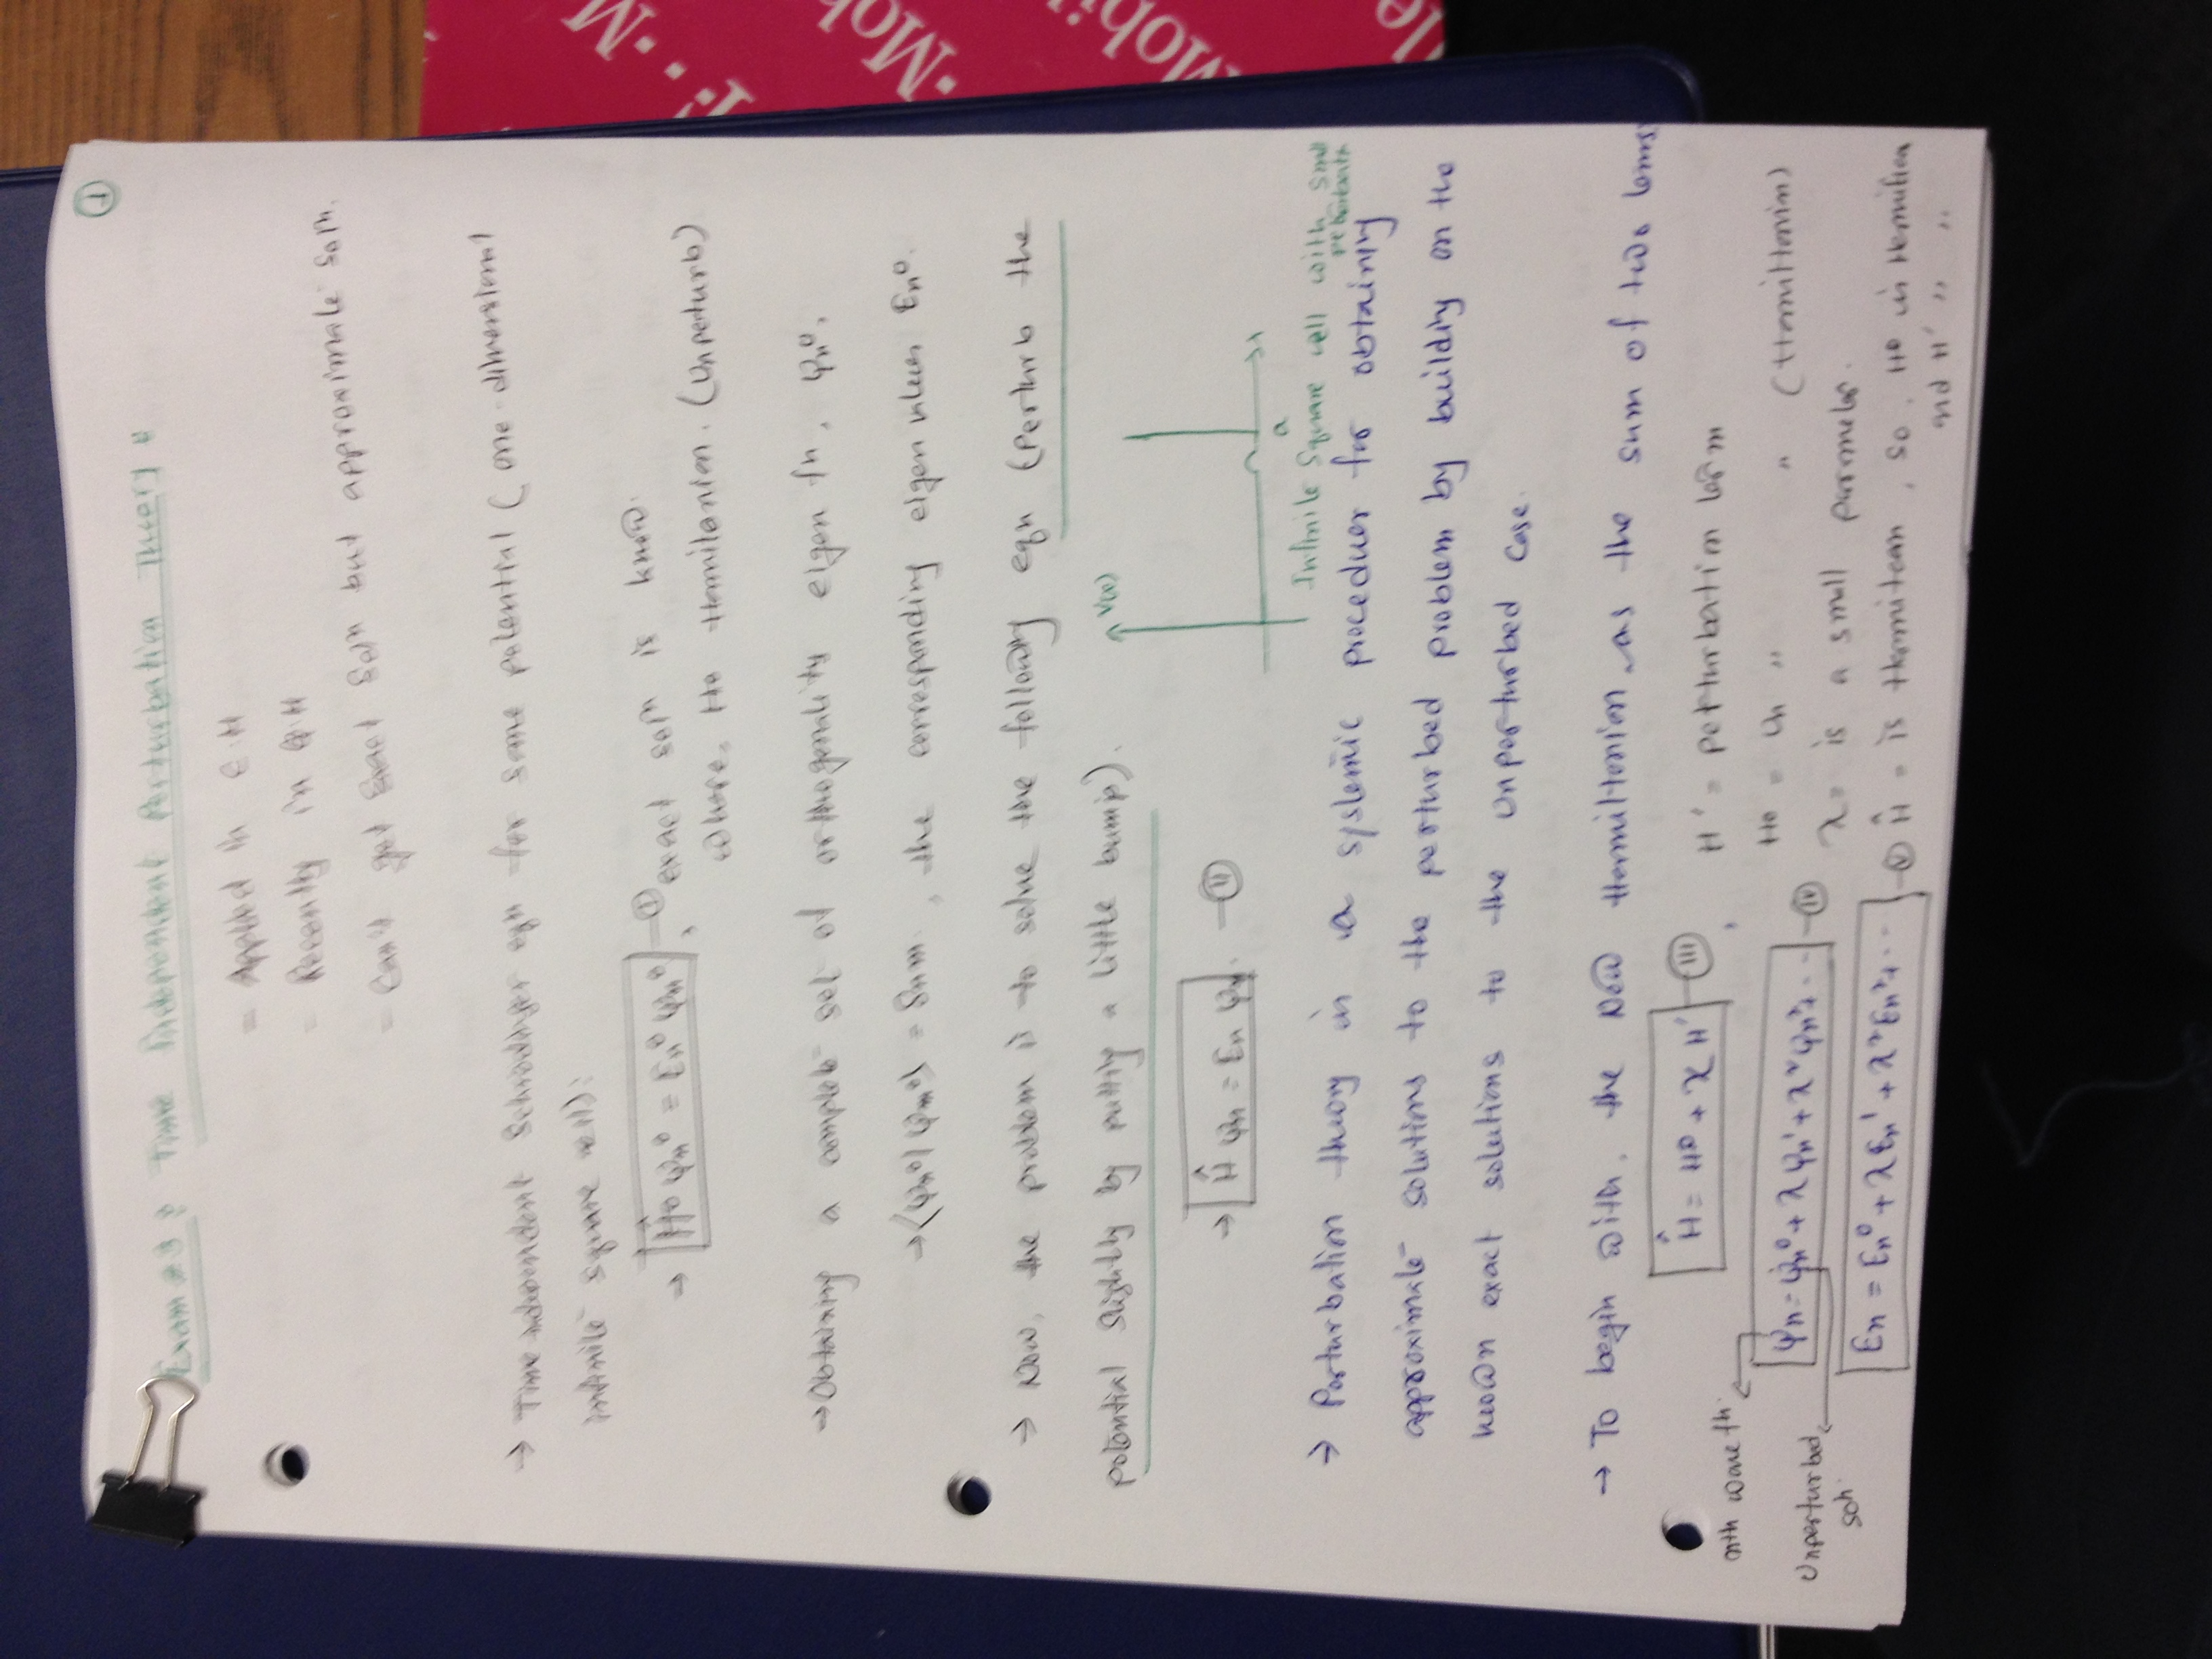 ①
Exam #3 : Time Independent Perturbation Theory :
= Applied in C.H
= Recently in Q.H
= Can't get Exact Soln but approximate soln.
→ Time independent Schrodinger eqn for some potential (one-dimensional
infinite square well):
→ Ĥ⁰ ψn⁰ = En⁰ ψn⁰ — (I), exact soln is know.
where, H⁰ Hamiltonian. (Unperturb)
→ Obtaining a complete set of orthogonality eigen fn, ψn⁰,
→ ⟨ψn⁰|ψm⁰⟩ = δnm. , the corresponding eigen values En⁰.
→ Now, the problem is to solve the following eqn (Perturb the
potential slightly by putting a little bump).
→ Ĥ ψn = En ψn. — (II)
V(x)
a
Infinite Square well with small
perturbatn
→ Perturbation theory is a systemic proceduer for obtaining
approximate solutions to the perturbed problem by building on the
known exact solutions to the unperturbed case.
→ To begin with, the New Hamiltonian as the sum of two terms
Ĥ = H⁰ + λ H' — (III) , H' = perturbation term
H⁰ = Un " " (Hamiltonian)
nth wave fn.
ψn = ψn⁰ + λ ψn' + λ² ψn² + ... — (IV)
λ = is a small parameter.
Unperturbed
soln.
En = En⁰ + λ En' + λ² En² + ... — (V)
Ĥ = is Hermitean, so, H⁰ is Hemitian
and H' " "
T · Mobile